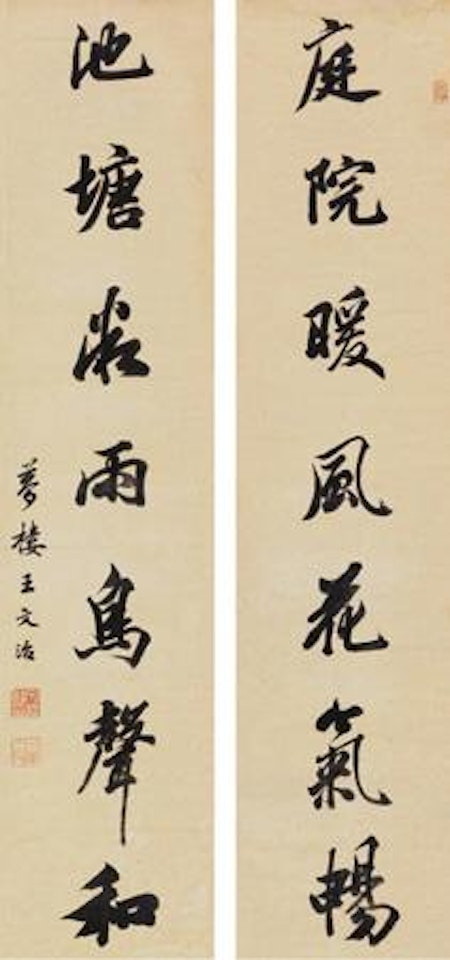 庭院暖風花氣暢
池塘雨鳥聲和
夢樓王文治